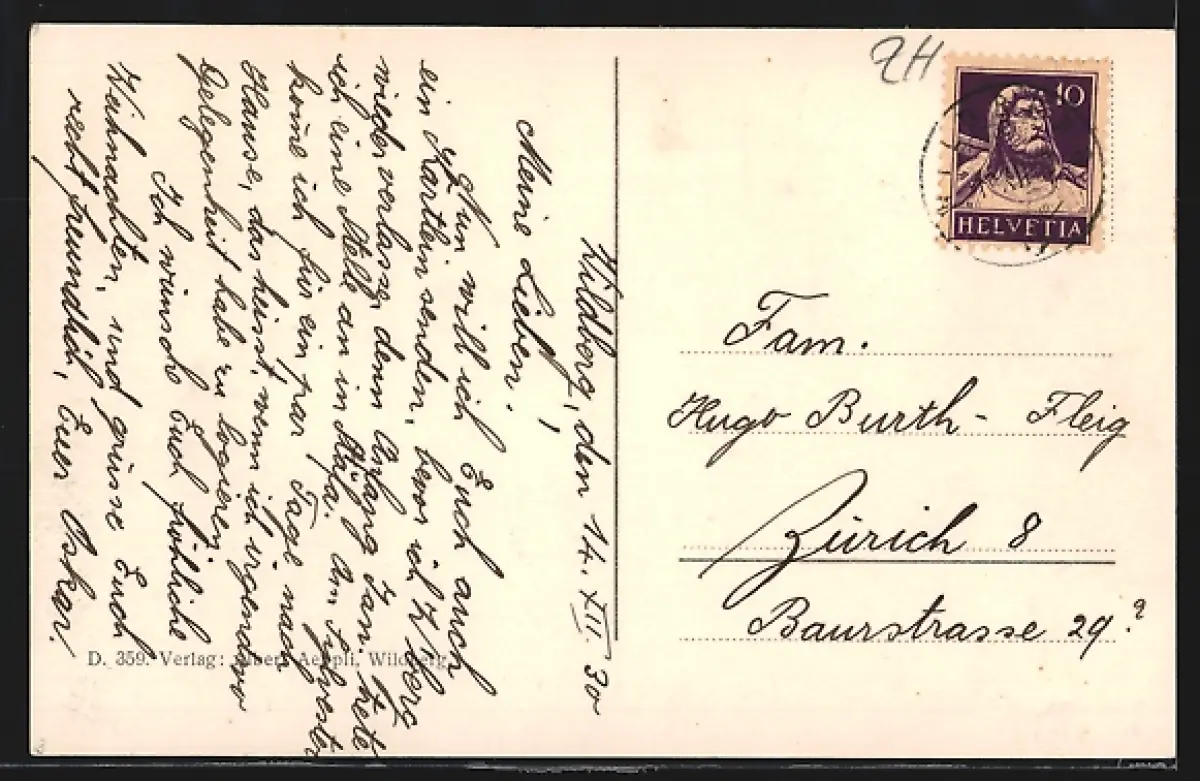 Wildberg, den 14. XII. 30
Meine Lieben!
Nun will ich Euch auch
ein Kärtlein senden, bevor ich W'berg
wieder verlasse, denn Anfang Jan. trete
ich eine Stelle an in Stäfa. Am Sylvester
kom̄e ich für ein paar Tage nach
Hause, das heisst, wenn ich irgendwo
Gelegenheit habe zu logieren.
Ich wünsche Euch fröhliche
Weihnachten, und grüsse Euch
recht freundlich, Euer Oskar.
D. 359. Verlag: Albert Aeppli, Wildberg.
ZH
10
HELVETIA
Fam.
Hugo Burth - Fleig
Zürich 8
Baurstrasse 29?